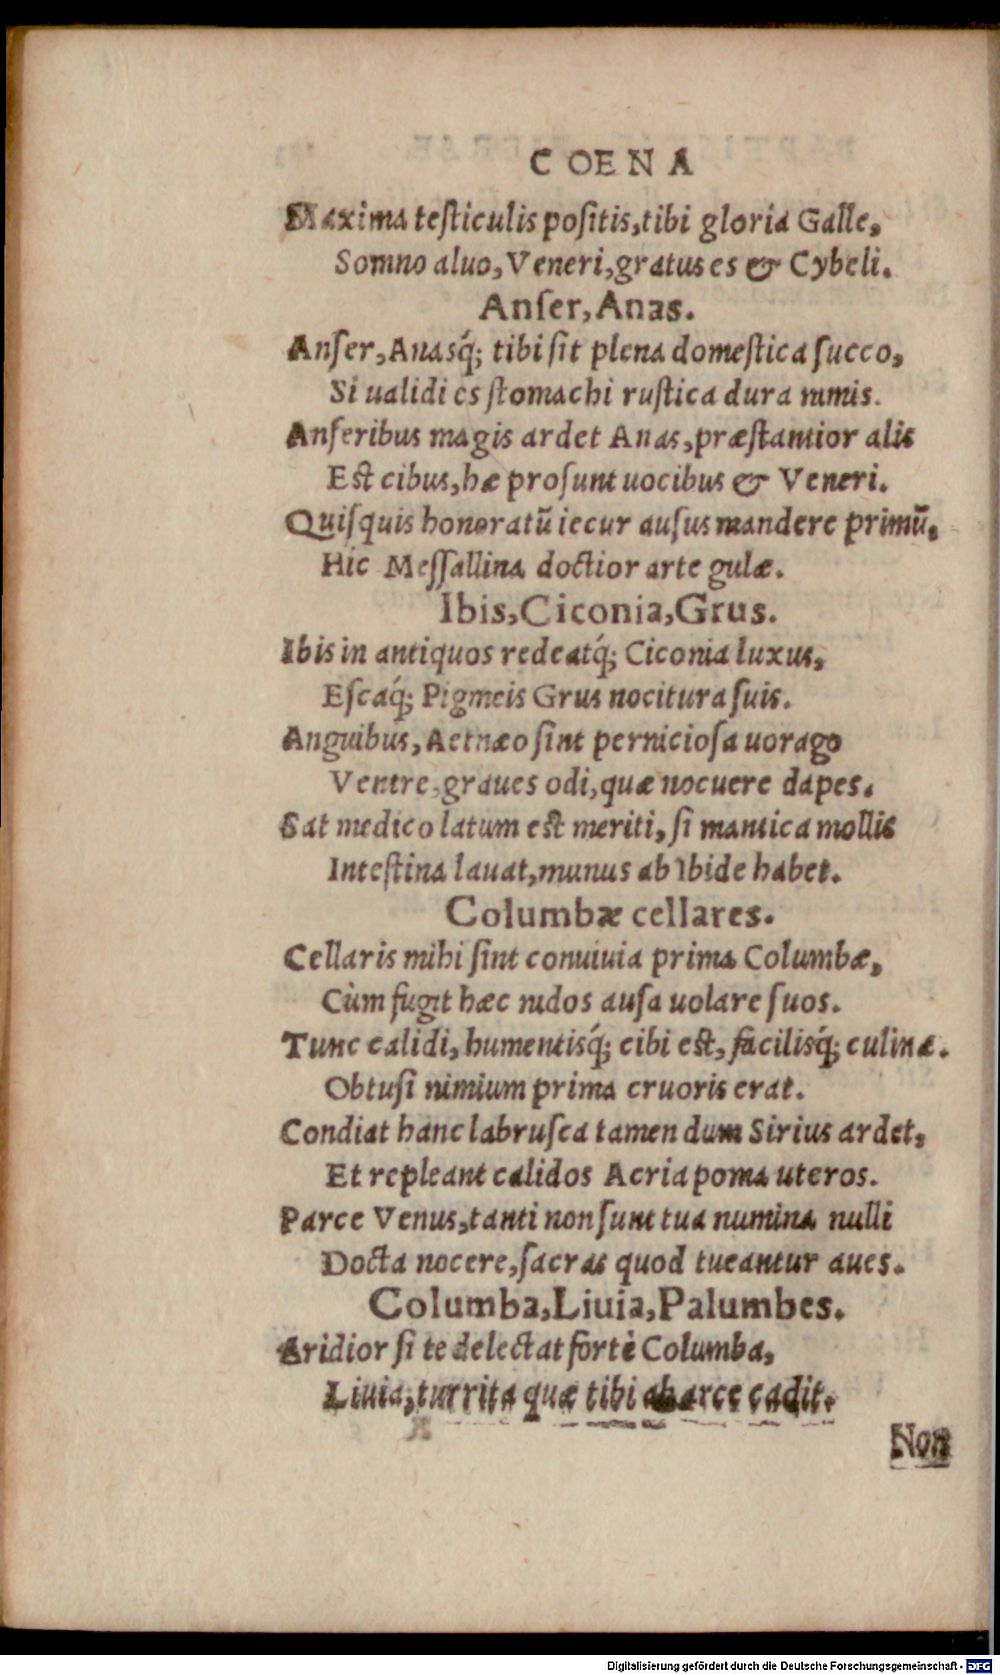 COENA
Maxima testiculis positis, tibi gloria Galle,
Somno aluo, Veneri, gratus es & Cybeli.
Anser, Anas.
Anser, Anasq́; tibi sit plena domestica succo,
Si ualidi es stomachi rustica dura nimis.
Anseribus magis ardet Anas, præstantior alis
Est cibus, hæ prosunt uocibus & Veneri.
Quisquis honoratū iecur ausus mandere primū,
Hic Messallina doctior arte gulæ.
Ibis, Ciconia, Grus.
Ibis in antiquos redeatq́; Ciconia luxus,
Escaq́; Pigmeis Grus nocitura suis.
Anguibus, Aetnæo sint perniciosa uorago
Ventre, graues odi, quæ nocuere dapes.
Sat medico latum est meriti, si mantica mollis
Intestina lauat, munus ab Ibide habet.
Columbæ cellares.
Cellaris mihi sint conuiuia prima Columbæ,
Cùm fugit hæc nidos ausa uolare suos.
Tunc calidi, humentisq́; cibi est, facilisq́; culinæ.
Obtusi nimium prima cruoris erat.
Condiat hanc labrusca tamen dum Sirius ardet,
Et repleant calidos Acria poma uteros.
Parce Venus, tanti non sunt tua numina nulli
Docta nocere, sacras quod tueantur aues.
Columba, Liuia, Palumbes.
Aridior si te delectat fortè Columba,
Liuia, turrita quæ tibi ab arce cadit.
Non
Digitalisierung gefördert durch die Deutsche Forschungsgemeinschaft - DFG